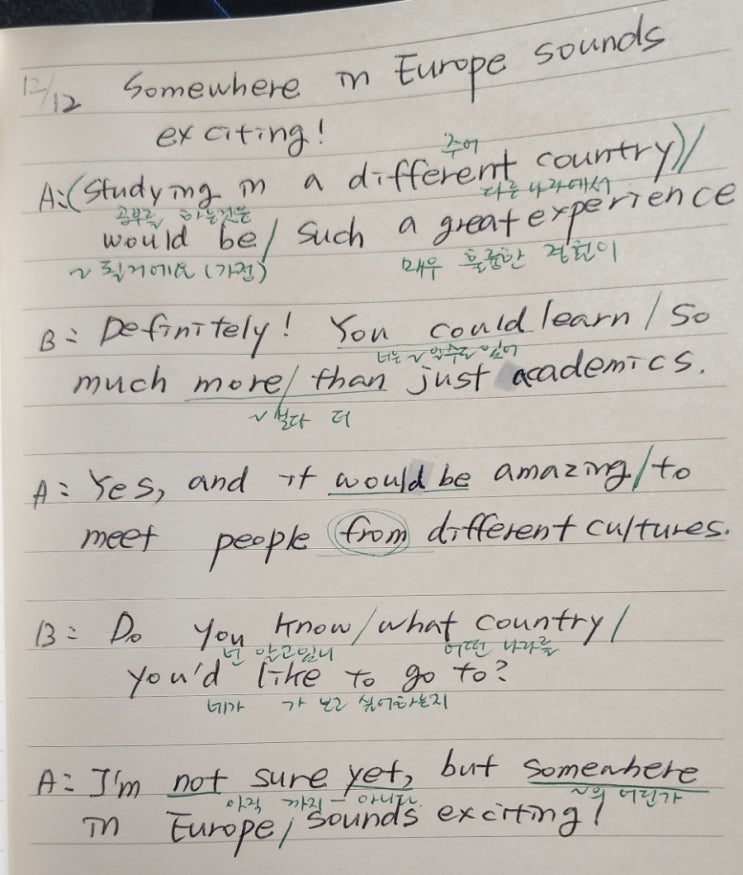 12/12 Somewhere in Europe sounds
exciting!
주어
A:(Studying in a different country)/
공부를 하는것은 다른 나라에서
would be/ such a great experience
~ 될거에요 (가정) 매우 훌륭한 경험이
B: Definitely! You could learn / so
너는 ~ 수도 있어
much more/ than just academics.
~ 보다 더
A: Yes, and it would be amazing/to
meet people from different cultures.
B: Do you know/what country/
넌 알고있니 어떤 나라를
you'd like to go to?
네가 가 보고 싶어하는지
A: I'm not sure yet, but somewhere
아직 까지 - 아니다. ~의 어딘가
in Europe/ sounds exciting!